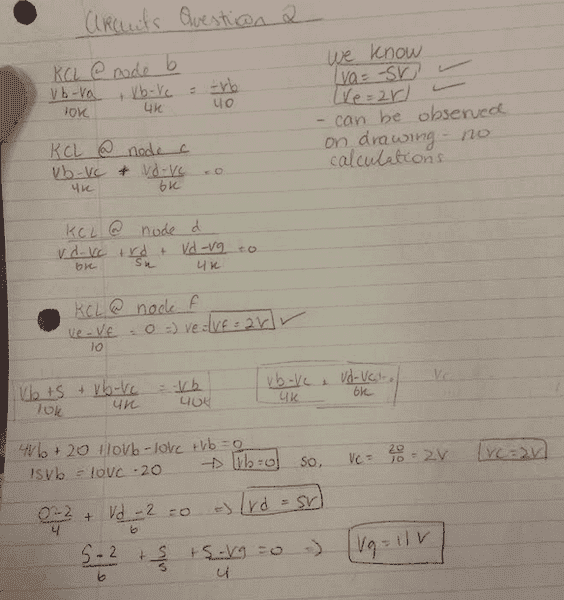 Circuits Question 2
KCL @ node b
(vb-va)/10k + (vb-vc)/4k = -vb/40
we know
va = -5V ✓
ve = 2V ✓
- can be observed
on drawing - no
calculations
KCL @ node c
(vb-vc)/4k + (vd-vc)/6k = 0
KCL @ node d
(vd-vc)/6k + vd/5k + (vd-vg)/4k = 0
KCL @ node f
(ve-vf)/10 = 0 => ve = vf = 2V ✓
(vb+5)/10k + (vb-vc)/4k = -vb/40k
(vb-vc)/4k + (vd-vc)/6k
4vb + 20 + 10vb - 10vc + vb = 0
15vb = 10vc - 20 → vb=0 so, vc = 20/10 = 2V vc = 2V
(0-2)/4 + (vd-2)/6 = 0 => vd = 5V
(5-2)/6 + 5/5 + (5-vg)/4 = 0 => vg = 11V